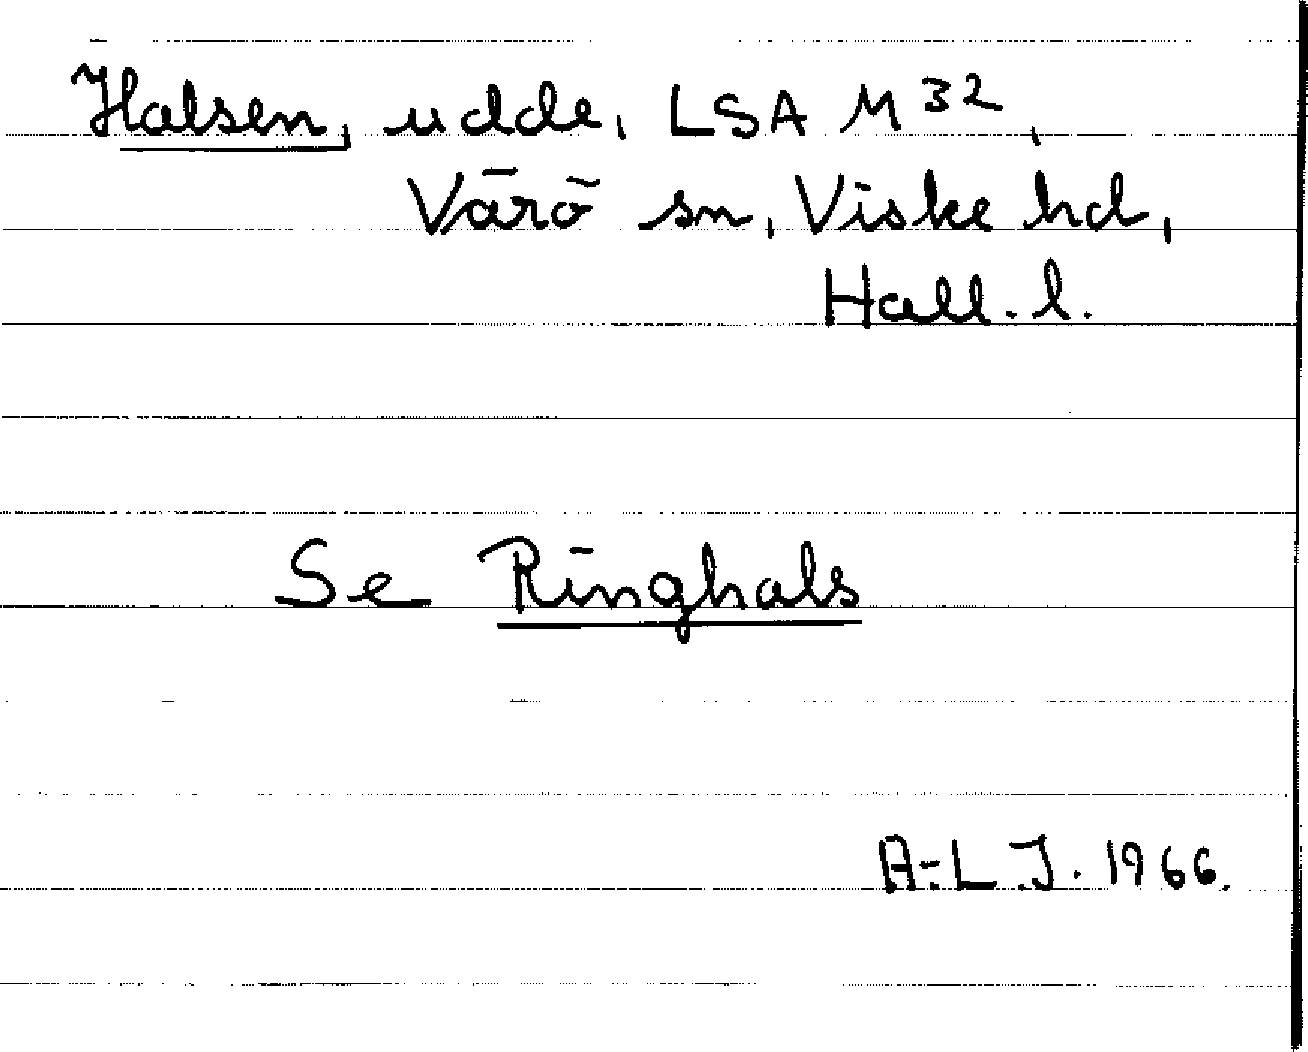 Halsen, udde, LSA M 32,
Värö sn, Viske hd,
Hall. l.
Se Ringhals
A-L. J. 1966.